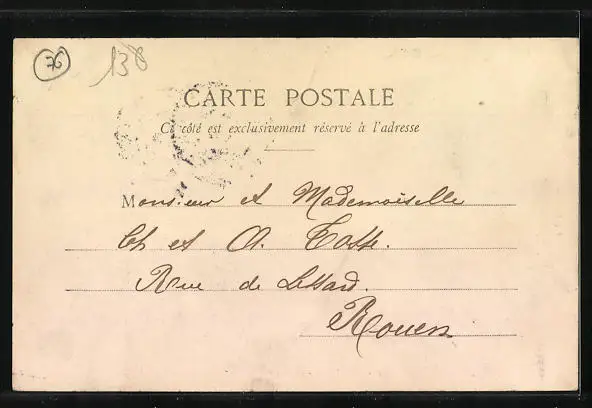 76 138
CARTE POSTALE
Ce côté est exclusivement réservé à l'adresse
Monsieur et Mademoiselle
Ch et A. Tosse.
Rue de Lessard.
Rouen